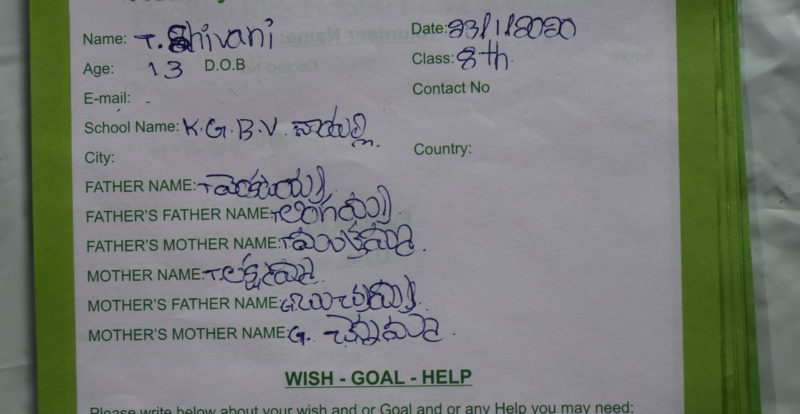 Name: T. Shivani Date: 23/1/2020
Age: 13 D.O.B Class: 8th
E-mail: - Contact No
School Name: K.G.B.V.
City: Country:
FATHER NAME: T వెంకటయ్య
FATHER'S FATHER NAME: T లింగయ్య
FATHER'S MOTHER NAME: T
MOTHER NAME: T లక్ష్మమ్మ
MOTHER'S FATHER NAME: G బుచ్చయ్య
MOTHER'S MOTHER NAME: G. చెన్నమ్మ
WISH - GOAL - HELP
Please write below about your wish and or Goal and or any Help you may need: